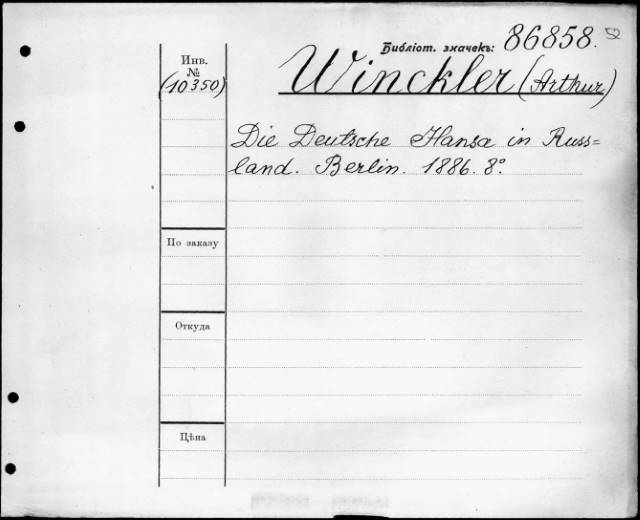 Библіот. значекъ: 86858. 52
Инв.
№
(10350)
Winckler (Arthur)
Die Deutsche Hansa in Russ=
land. Berlin. 1886. 8°.
По заказу
Откуда
Цѣна